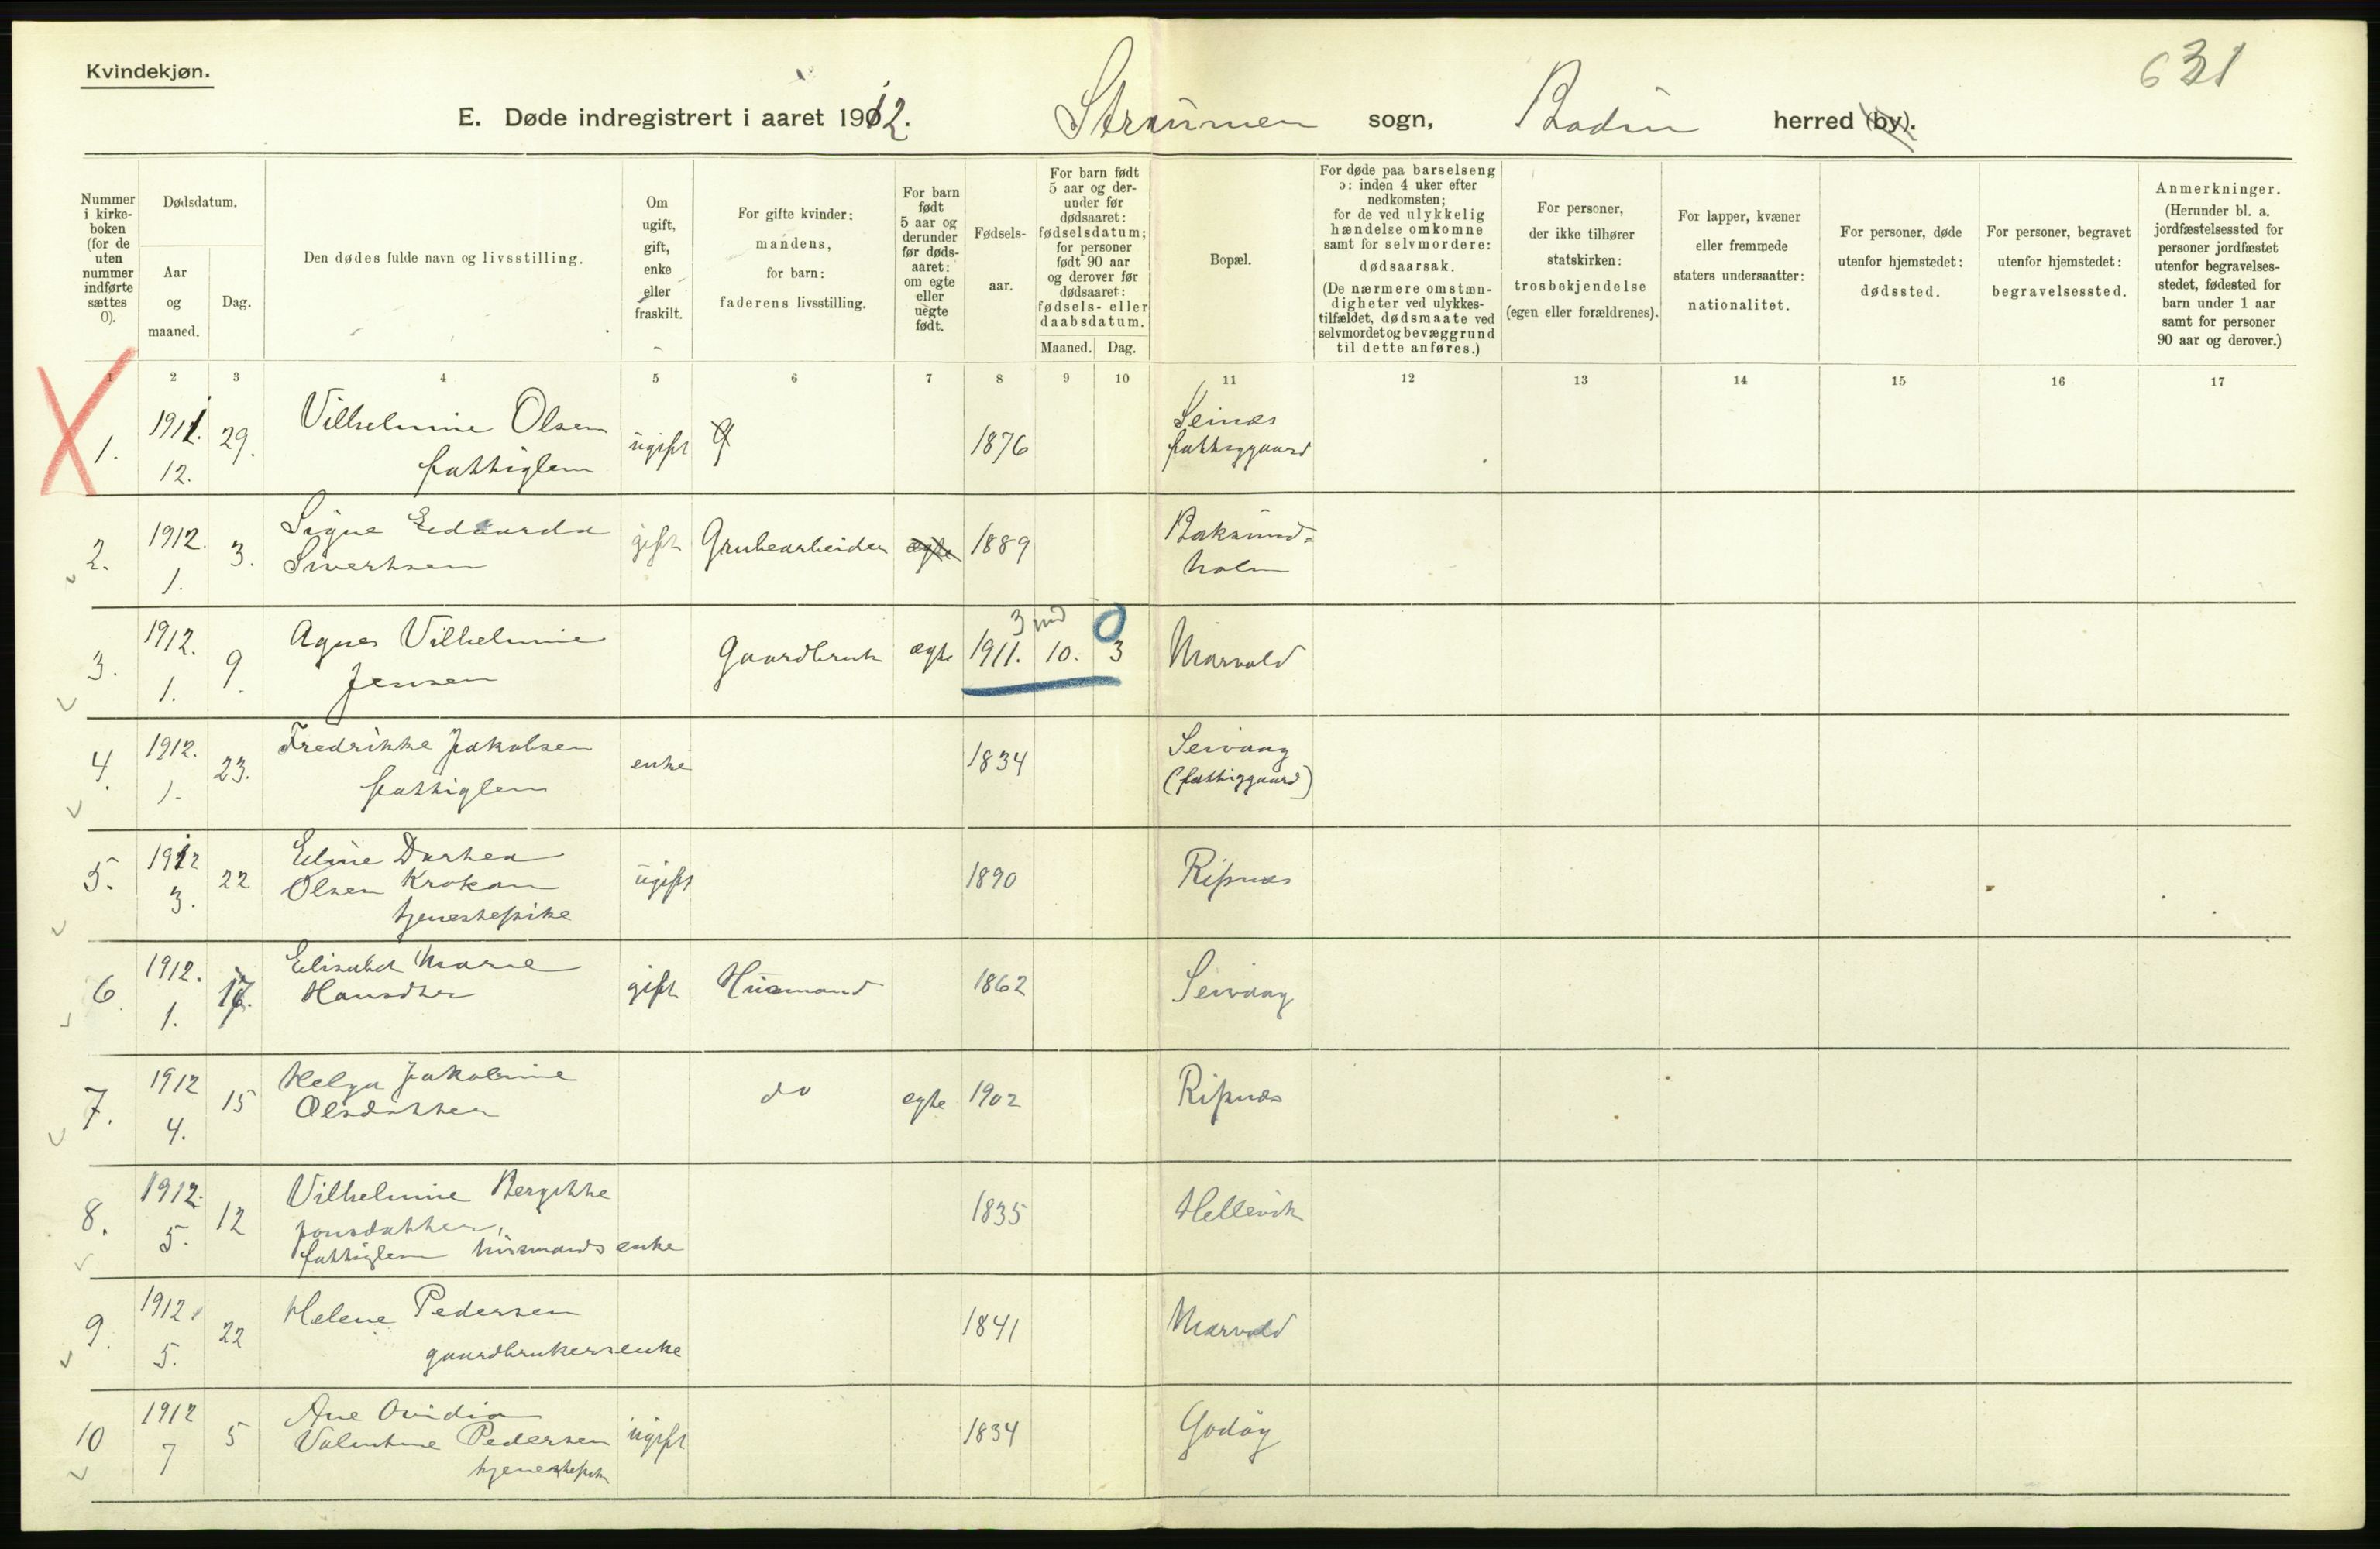 Kvindekjøn.
631
E. Døde indregistrert i aaret 1912. Strømmen sogn, Bodin herred (by).
Nummer i kirke-boken (for de uten nummer indførte sættes 0).
Dødsdatum.
Aar og maaned.
Dag.
Den dødes fulde navn og livsstilling.
Om ugift, gift, enke eller fraskilt.
For gifte kvinder: mandens, for barn: faderens livsstilling.
For barn født 5 aar og derunder før døds-aaret: om egte eller uegte født.
Fødsels-aar.
For barn født 5 aar og der-under før dødsaaret: fødselsdatum; for personer født 90 aar og derover før dødsaaret: fødsels- eller daabsdatum.
Maaned. Dag.
Bopæl.
For døde paa barselseng ɔ: inden 4 uker efter nedkomsten; for de ved ulykkelig hændelse omkomne samt for selvmordere: dødsaarsak. (De nærmere omstæn-digheter ved ulykkes-tilfældet, dødsmaate ved selvmordet og bevæggrund til dette anføres.)
For personer, der ikke tilhører statskirken: trosbekjendelse (egen eller forældrenes).
For lapper, kvæner eller fremmede staters undersaatter: nationalitet.
For personer, døde utenfor hjemstedet: dødssted.
For personer, begravet utenfor hjemstedet: begravelsessted.
Anmerkninger. (Herunder bl. a. jordfæstelsessted for personer jordfæstet utenfor begravelses-stedet, fødested for barn under 1 aar samt for personer 90 aar og derover.)
1 2 3 4 5 6 7 8 9 10 11 12 13 14 15 16 17
1. 1911. 12. 29. Vilhelmine Olsen fattiglem ugift 1876 Seines fattiggaard
2. 1912. 1. 3. Signe Edvarda Sivertsen gift Grubearbeider egte 1889 Baksund-holm
3. 1912. 1. 9. Agnes Vilhelmine Jensen Gaardbruk egte 1911. 10. 3 3 md 0 Marvold
4. 1912. 1. 23. Fredrikke Jakobsen fattiglem enke 1834 Seivaag (fattiggaard)
5. 1912 3. 22 Eline Dorthea Olsen Krokan tjenestepike ugift 1890 Ripnes
6. 1912. 1. 17. Elisabet Marie Hansdter gift Husmand 1862 Seivaag
7. 1912 4. 15 Helga Jakobine Olsdatter do egte 1902 Ripnes
8. 1912. 5. 12 Vilhelmine Bergitte Jonsdatter, fattiglem husmands enke 1835 Hellevik
9. 1912. 5. 22 Helene Pedersen gaardbrukersenke 1841 Marvold
10 1912 7 5 Ane Ovidia Valentine Pedersen tjenestepik ugift 1834 Godøy